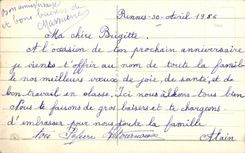 Bons amitiés
et bons baisers de
Rennes - 30 - Avril 1986
Ma chère Brigitte.
A l'occasion de ton prochain anniversaire
je viens t'offrir au nom de toute la famille
nos meilleurs vœux de joie, de santé, et de
bon travail en classe. Ici nous allons tous bien
Nous te faisons de gros baisers et te chargeons
d'embrasser pour nous toute la famille
Alain